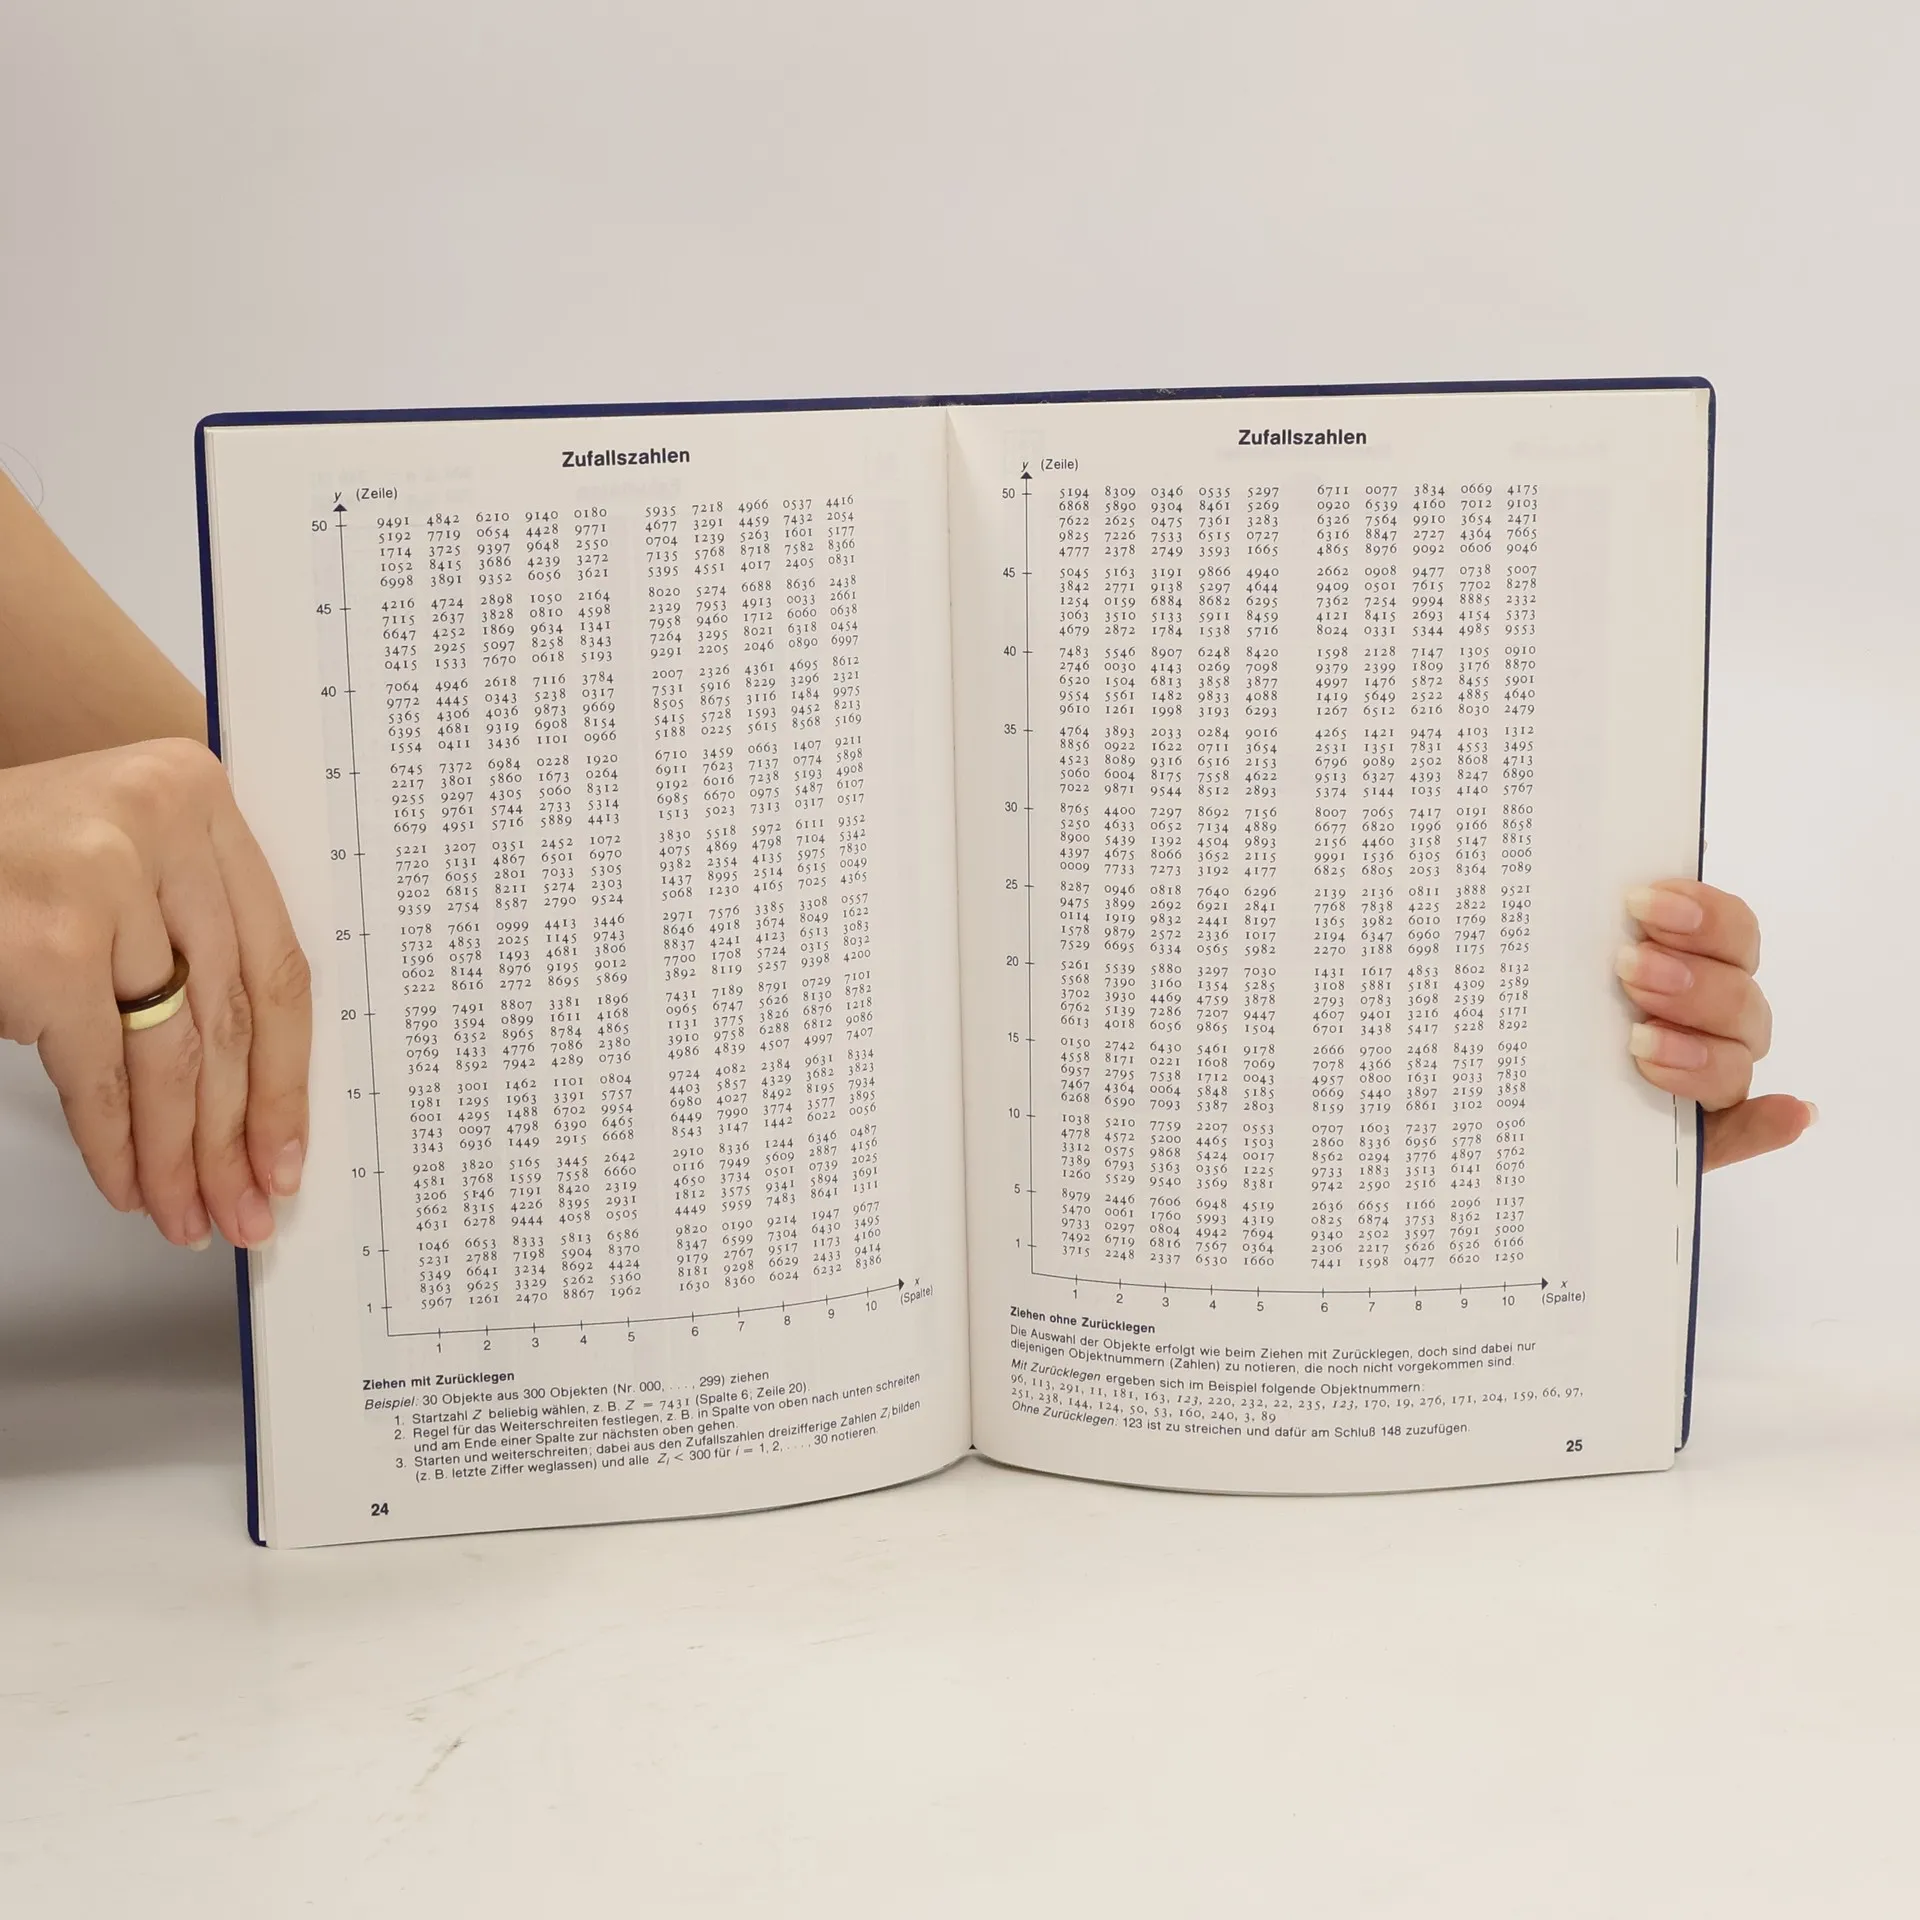 Zufallszahlen
y (Zeile)
50
9491 4842 6210 9140 0180 5935 7218 4966 0537 4416
5192 7719 0654 4428 9771 4677 3291 4459 7432 2054
1714 3725 9397 9648 2550 0704 1239 5263 1601 5177
1052 8415 3686 4239 3272 7135 5768 8718 7582 8366
6998 3891 9352 6056 3621 5395 4551 4017 2405 0831
45
4216 4724 2898 1050 2164 8020 5274 6688 8636 2438
7115 2637 3828 0810 4598 2329 7953 4913 0033 2661
6647 4252 1869 9634 1341 7958 9460 1712 6060 0638
3475 2925 5097 8258 8343 7264 3295 8021 6318 0454
0415 1533 7670 0618 5193 9291 2205 2046 0890 6997
40
7064 4946 2618 7116 3784 2007 2326 4361 4695 8612
9772 4445 0343 5238 0317 7531 5916 8229 3296 2321
5365 4306 4036 9873 9669 8505 8675 3116 1484 9975
6395 4681 9319 6908 8154 5415 5728 1593 9452 8213
1554 0411 3436 1101 0966 5188 0225 5615 8568 5169
35
6745 7372 6984 0228 1920 6710 3459 0663 1407 9211
2217 3801 5860 1673 0264 6911 7623 7137 0774 5898
9255 9297 4305 5060 8312 9192 6016 7238 5193 4908
1615 9761 5744 2733 5314 6985 6670 0975 5487 6107
6679 4951 5716 5889 4413 1513 5023 7313 0317 0517
30
5221 3207 0351 2452 1072 3830 5518 5972 6111 9352
7720 5131 4867 6501 6970 4075 4869 4798 7104 5342
2767 6055 2801 7033 5305 9382 2354 4135 5975 7830
9202 6815 8211 5274 2303 1437 8995 2514 6515 0049
9359 2754 8587 2790 9524 5068 1230 4165 7025 4365
25
1078 7661 0999 4413 3446 2971 7576 3385 3308 0557
5732 4853 2025 1145 9743 8646 4918 3674 8049 1622
1596 0578 1493 4681 3806 8837 4241 4123 6513 3083
0602 8144 8976 9195 9012 7700 1708 5724 0315 8032
5222 8616 2772 8695 5869 3892 8119 5257 9398 4200
20
5799 7491 8807 3381 1896 7431 7189 8791 0729 7101
8790 3594 0899 1611 4168 0965 6747 5626 8130 8782
7693 6352 8965 8784 4865 1131 3775 3826 6876 1218
0769 1433 4776 7086 2380 3910 9758 6288 6812 9086
3624 8592 7942 4289 0736 4986 4839 4507 4997 7407
15
9328 3001 1462 1101 0804 9724 4082 2384 9631 8334
1981 1295 1963 3391 5757 4403 5857 4329 3682 3823
6001 4295 1488 6702 9954 6980 4027 8492 8195 7934
3743 0097 4798 6390 6465 6449 7990 3774 3577 3895
3343 6936 1449 2915 6668 8543 3147 1442 6022 0056
10
9208 3820 5165 3445 2642 2910 8336 1244 6346 0487
4581 3768 1559 7558 6660 0116 7949 5609 2887 4156
3206 5146 7191 8420 2319 4650 3734 0501 0739 2025
5662 8315 4226 8395 2931 1812 3575 9341 5894 3691
4631 6278 9444 4058 0505 4449 5959 7483 8641 1311
5
1046 6653 8333 5813 6586 9820 0190 9214 1947 9677
5231 2788 7198 5904 8370 8347 6599 7304 6430 3495
5349 6641 3234 8692 4424 9179 2767 9517 1173 4160
8363 9625 3329 5262 5360 8181 9298 6629 2433 9414
1
5967 1261 2470 8867 1962 1630 8360 6024 6232 8386
1 2 3 4 5 6 7 8 9 10 x (Spalte)
Ziehen mit Zurücklegen
Beispiel: 30 Objekte aus 300 Objekten (Nr. 000, . . . , 299) ziehen
1. Startzahl Z beliebig wählen, z. B. Z = 7431 (Spalte 6, Zeile 20).
2. Regel für das Weiterschreiten festlegen, z. B. in Spalte von oben nach unten schreiten
und am Ende einer Spalte zur nächsten oben gehen.
3. Starten und weiterschreiten; dabei aus den Zufallszahlen dreizifferige Zahlen Zi bilden
(z. B. letzte Ziffer weglassen) und alle Zi < 300 für i = 1, 2, . . . , 30 notieren.
24
Zufallszahlen
y (Zeile)
50
5194 8309 0346 0535 5297 6711 0077 3834 0669 4175
6868 5890 9304 8461 5269 0920 6539 4160 7012 9103
7622 2625 0475 7361 3283 6326 7564 9910 3654 2471
9825 7226 7533 6515 0727 6316 8847 2727 4364 7665
4777 2378 2749 3593 1665 4865 8976 9092 0606 9046
45
5045 5163 3191 9866 4940 2662 0908 9477 0738 5007
3842 2771 9138 5297 4644 9409 0501 7615 7702 8278
1254 0159 6884 8682 6295 7362 7254 9994 8885 2332
3063 3510 5133 5911 8459 4121 8415 2693 4154 5373
4679 2872 1784 1538 5716 8024 0331 5344 4985 9553
40
7483 5546 8907 6248 8420 1598 2128 7147 1305 0910
2746 0030 4143 0269 7098 9379 2399 1809 3176 8870
6520 1504 6813 3858 3877 4997 1476 5872 8455 5901
9554 5561 1482 9833 4088 1419 5649 2522 4885 4640
9610 1261 1998 3193 6293 1267 6512 6216 8030 2479
35
4764 3893 2033 0284 9016 4265 1421 9474 4103 1312
8856 0922 1622 0711 3654 2531 1351 7831 4553 3495
4523 8089 9316 6516 2153 6796 9089 2502 8608 4713
5060 6004 8175 7558 4622 9513 6327 4393 8247 6890
7022 9871 9544 8512 2893 5374 5144 1035 4140 5767
30
8765 4400 7297 8692 7156 8007 7065 7417 0191 8860
5250 4633 0652 7134 4889 6677 6820 1996 9166 8658
8900 5439 1392 4504 9893 2156 4460 3158 5147 8815
4397 4675 8066 3652 2115 9991 1536 6305 6163 0006
0009 7733 7273 3192 4177 6825 6805 2053 8364 7089
25
8287 0946 0818 7640 6296 2139 2136 0811 3888 9521
9475 3899 2692 6921 2841 7768 7838 4225 2822 1940
0114 1919 9832 2441 8197 1365 3982 6010 1769 8283
1578 9879 2572 2336 1017 2194 6347 6960 7947 6962
7529 6695 6334 0565 5982 2270 3188 6998 1175 7625
20
5261 5539 5880 3297 7030 1431 1617 4853 8602 8132
5568 7390 3160 1354 5285 3108 5881 5181 4309 2589
3702 3930 4469 4759 3878 2793 0783 3698 2539 6718
6762 5139 7286 7207 9447 4607 9401 3216 4604 5171
6613 4018 6056 9865 1504 6701 3438 5417 5228 8292
15
0150 2742 6430 5461 9178 2666 9700 2468 8439 6940
4558 8171 0221 1608 7069 7078 4366 5824 7517 9915
6957 2795 7538 1712 0043 4957 0800 1631 9033 7830
7467 4364 0064 5848 5185 0669 5440 3897 2159 3858
6268 6590 7093 5387 2803 8159 3719 6861 3102 0094
10
1038 5210 7759 2207 0553 0707 1603 7237 2970 0506
4778 4572 5200 4465 1503 2860 8336 6956 5778 6811
3312 0575 9868 5424 0017 8562 0294 3776 4897 5762
7389 6793 5363 0356 1225 9733 1883 3513 6141 6076
1260 5529 9540 3569 8381 9742 2590 2516 4243 8130
5
8979 2446 7606 6948 4519 2636 6655 1166 2096 1137
5470 0061 1760 5993 4319 0825 6874 3753 8362 1237
9733 0297 0804 4942 7694 9340 2502 3597 7691 5000
7492 6719 6816 7567 0364 2306 2217 5626 6526 6166
1
3715 2248 2337 6530 1660 7441 1598 0477 6620 1250
1 2 3 4 5 6 7 8 9 10 x (Spalte)
Ziehen ohne Zurücklegen
Die Auswahl der Objekte erfolgt wie beim Ziehen mit Zurücklegen, doch sind dabei nur
diejenigen Objektnummern (Zahlen) zu notieren, die noch nicht vorgekommen sind.
Mit Zurücklegen ergeben sich im Beispiel folgende Objektnummern:
96, 113, 291, 11, 181, 163, 123, 220, 232, 22, 235, 123, 170, 19, 276, 171, 204, 159, 66, 97,
251, 238, 144, 124, 50, 53, 160, 240, 3, 89
Ohne Zurücklegen: 123 ist zu streichen und dafür am Schluß 148 zuzufügen.
25